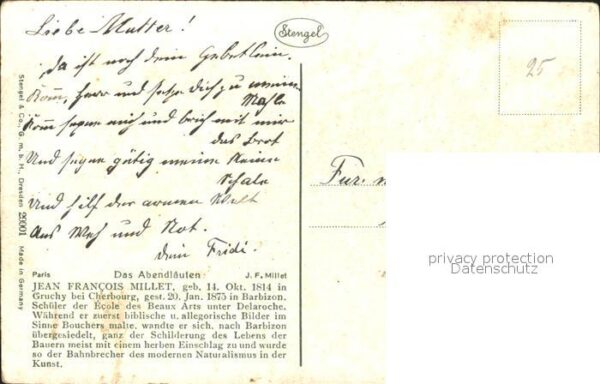 Liebe Mutter!
Stengel
25
da ist noch dein Gebetlein.
Komm, Herr und setze Dich zu meinem
Mahle
Komm segne mich und brich mit mir
das Brot
Und segne gütig meine kleine
Schale
Und hilf der armen Welt
Aus Weh und Not.
Dein Fridi.
Für
Stengel & Co., G. m. b. H., Dresden 29001 Made in Germany
privacy protection
Datenschutz
Paris Das Abendläuten J. F. Millet
JEAN FRANÇOIS MILLET, geb. 14. Okt. 1814 in
Gruchy bei Cherbourg, gest. 20. Jan. 1875 in Barbizon.
Schüler der École des Beaux Arts unter Delaroche.
Während er zuerst biblische u. allegorische Bilder im
Sinne Bouchers malte, wandte er sich, nach Barbizon
übergesiedelt, ganz der Schilderung des Lebens der
Bauern meist mit einem herben Einschlag zu und wurde
so der Bahnbrecher des modernen Naturalismus in der
Kunst.